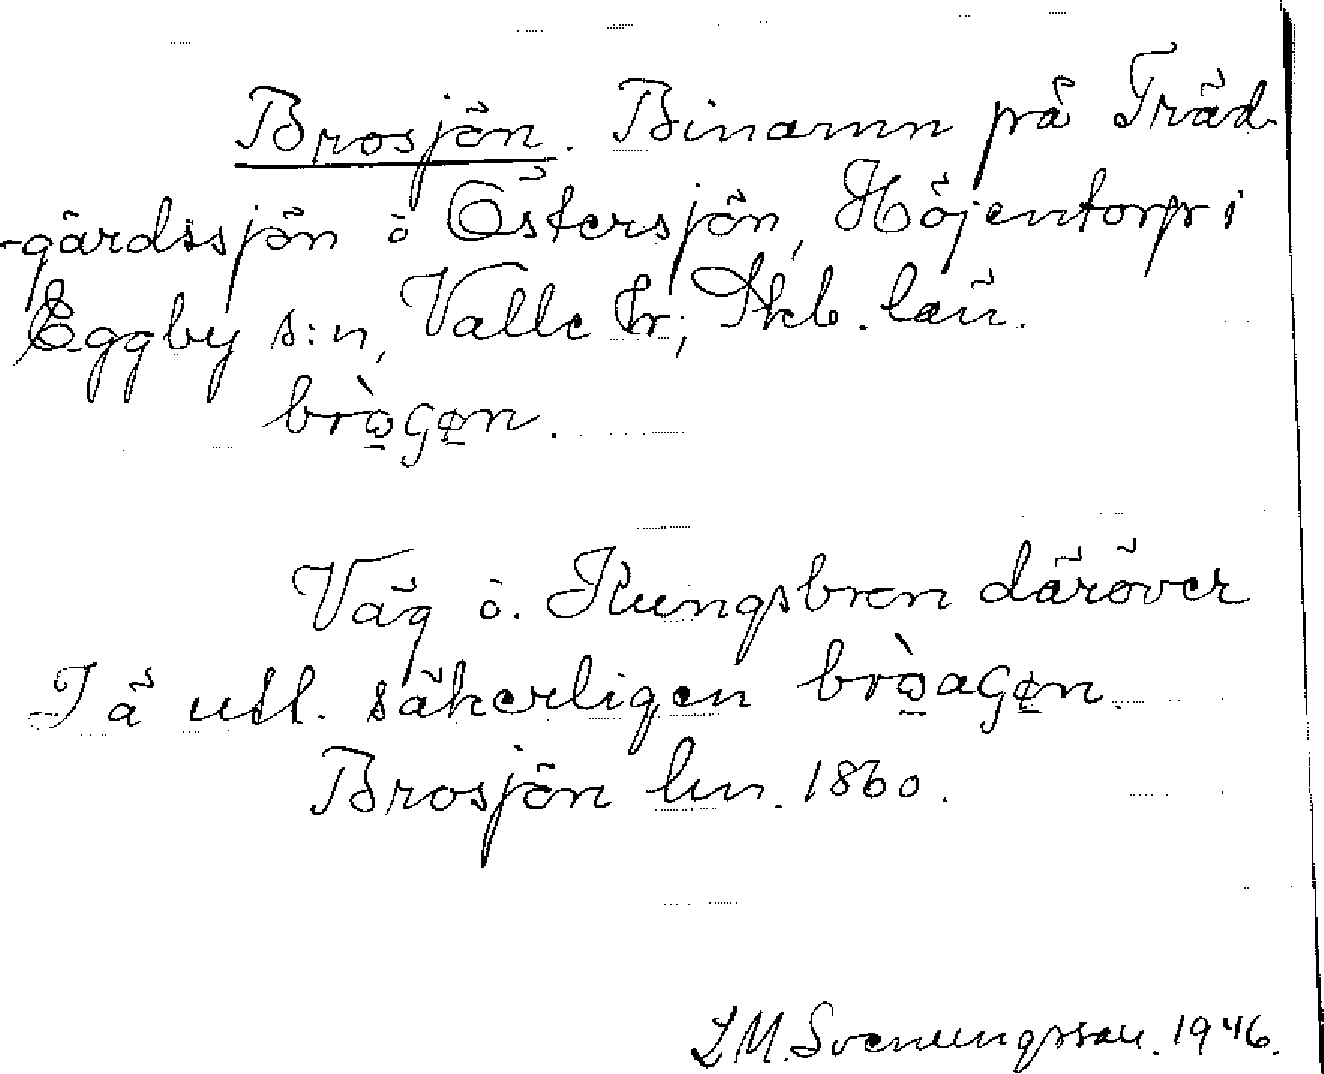 Brosjön. Binamn på Träd-
-gårdssjön o Östersjön, Höjentorp i
Eggby s:n, Valle hr; Skb. län.
brògen.
Väg o. Kungsbron däröver
I ä utt. säkerligen bròagen.
Brosjön lm. 1860.
L.M. Svenungsson. 1946.